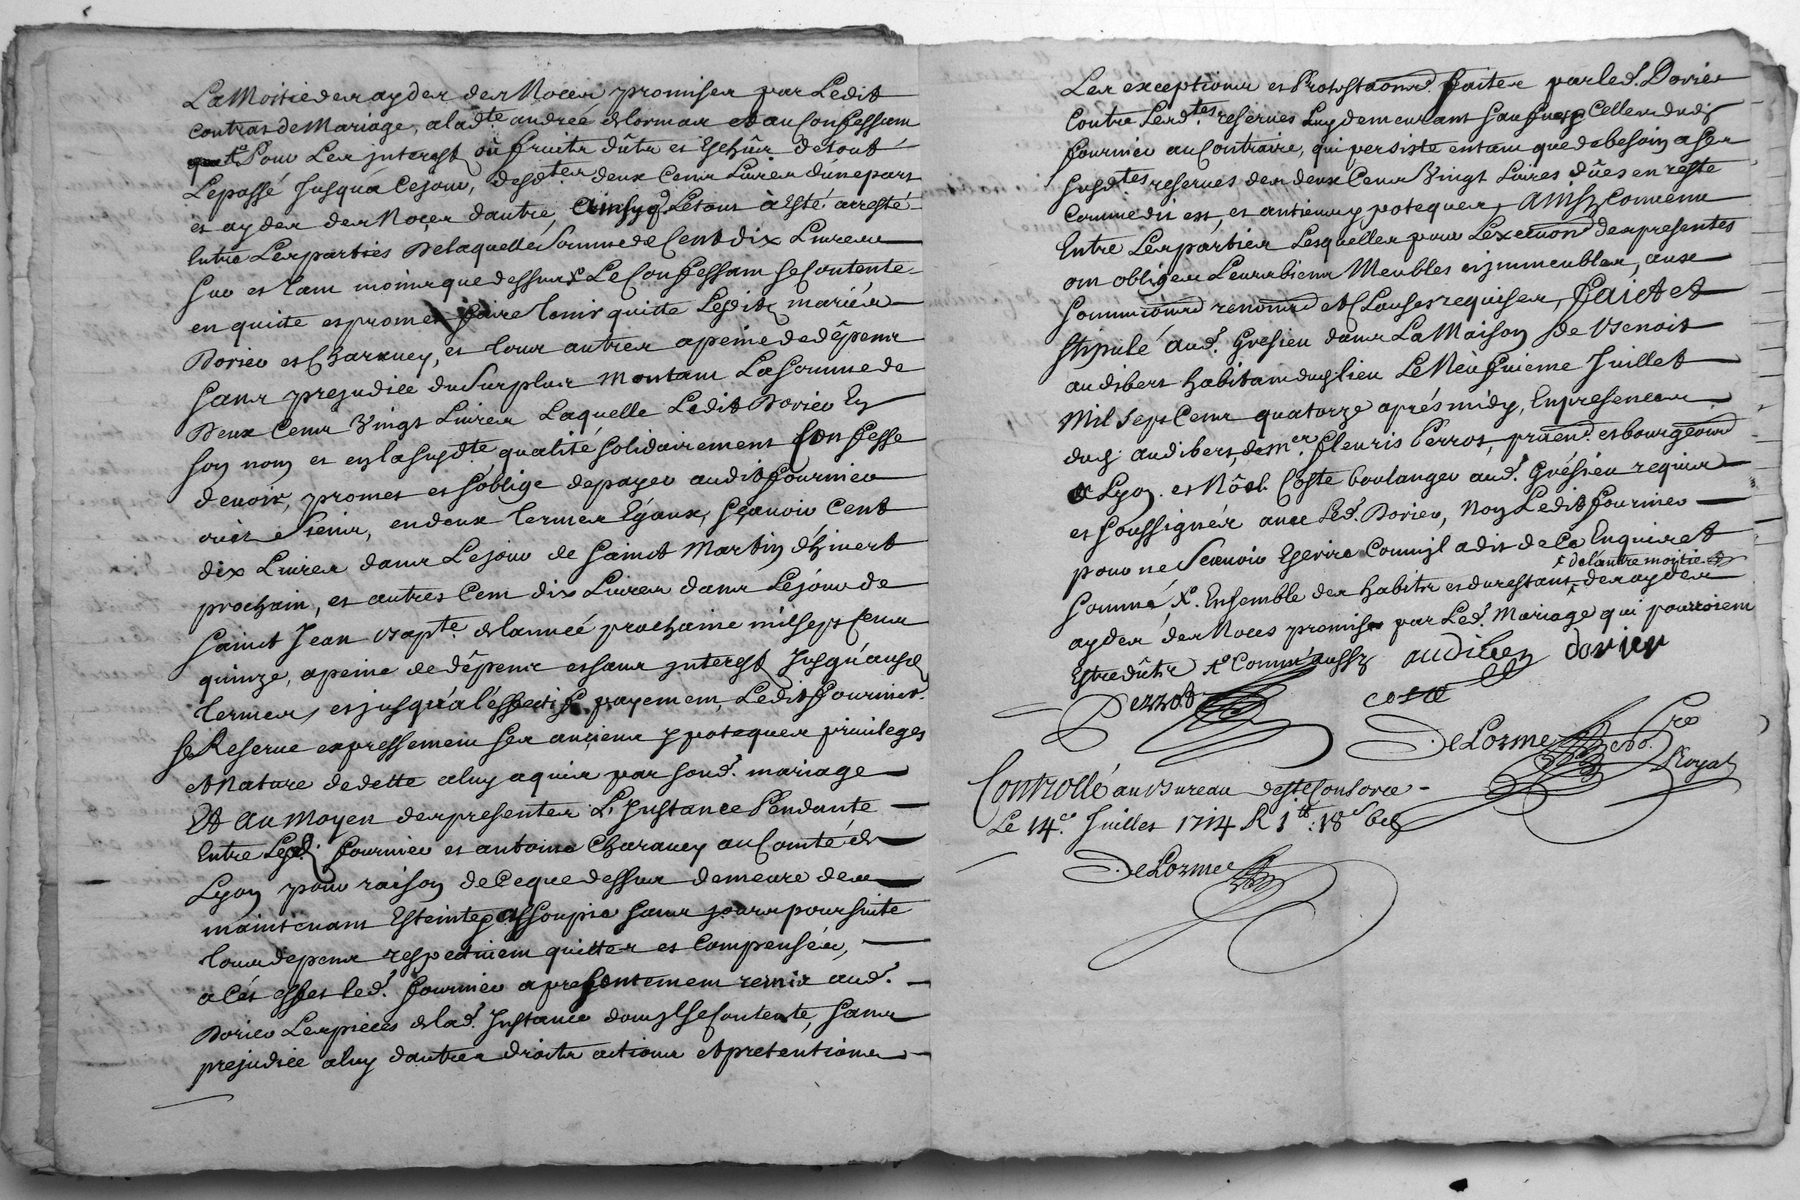 La Moitie des aydes des Noces promises par Ledit
Contrat de Mariage, a lad.te andrée delorme et au Confessant
Pour Les jnterest ou fruits dûts et Escheûs de tout
Le passé Jusqua Ce jour, desd.tes deux Cens Livres d'une part
et aydes des Noces dautre, Ainsy q. Le tout à Esté arresté
Entre Les parties De laquelle Somme de Cent dix Livres
en quitte et promet faire tenir quitte Lesdits mariés
Dorier et Charavey, et tous autres a peine de dêpens
Sans prejudice du Surplus Montant La Somme de
Deux Cens Vingt Livres Laquelle Ledit Dorier En
Son nom et en la susd.te qualité Solidairement Confesse
devoir, promet et Soblige de payer audit fournier
en deux Termes Egaux, Sçauoir Cent
dix Livres dans Le jour de Sainct Martin d'hivert
prochain, et autres Cent dix Livres dans Le jour de
Sainct Jean Bap.te de lanneé prochaine mil Sept Cens
quinze, a peine de dêpens et sans jnterest Jusqu'ausd.
Termes, et jusqu'a l'effectif payement, Ledit fournier
Se Reserue expressement Ses anciens ypoteques priuileges
et Nature de dette a luy aquis par sond. mariage
Et Au Moyen des presentes L'Jnstance Pendante
Entre Lesd. fournier et antoine Charauey au Comté de
Lyon pour raison de Ce que dessus demeure des
maintenant Esteinte, assoupie Sans poursuite
tous depens respectiuem quittes et Compensés,
a Cét effet led. fournier a presentement remis aud.
Dorier Les pieces de lad. Jnstance dont jl Se Contente, Sans
prejudice a luy dautres droits actions et pretentions
Les exceptions et Protestaons faites par led. Dorier
Contre Lesd.tes reserues Luy demeurant Celles dudit
fournier au Contraire, qui persiste entant que de besoin a Ses
susd.tes reserues des deux Cens Vingt Liures dûes en reste
Comme dit est, et antiens ypoteques, Ainsy Conuenu
Entre Les parties Lesquelles pour L'exeuon des presentes
ont obligés Leurs biens Meubles et jmmeubles, aux
et Clauses requises, Faict et
Stipulé aud. Gresieu dans La Maison de Benoit
audibert habitant dud. lieu Le Neufuieme Juillet
Mil Sept Cens quatorze aprés midy, En presence
dud. audibert, de m.er fleuris Perrot, praen. et bourgeois
de Lyon. et Nôel Coste boulanger aud. Grésieu requis
et Soussignés auec Led. Dorier, Non Ledit fournier
pour ne Scauoir Escrire Comm'jl a dit de Ce Enquis et
de l'autre moytie
Sommé, x. Ensemble des habits et du restant des aydes
aydes des Noces promises par Led. Mariage qui pourroient
Estre dûts Comm'aussy audibert dorier
Perrod coste
DeLorme No.re Royal
Controllé au Bureau deste Consorce
Le 14.e Juillet 1714 R 1 tt : 18 s
DeLorme